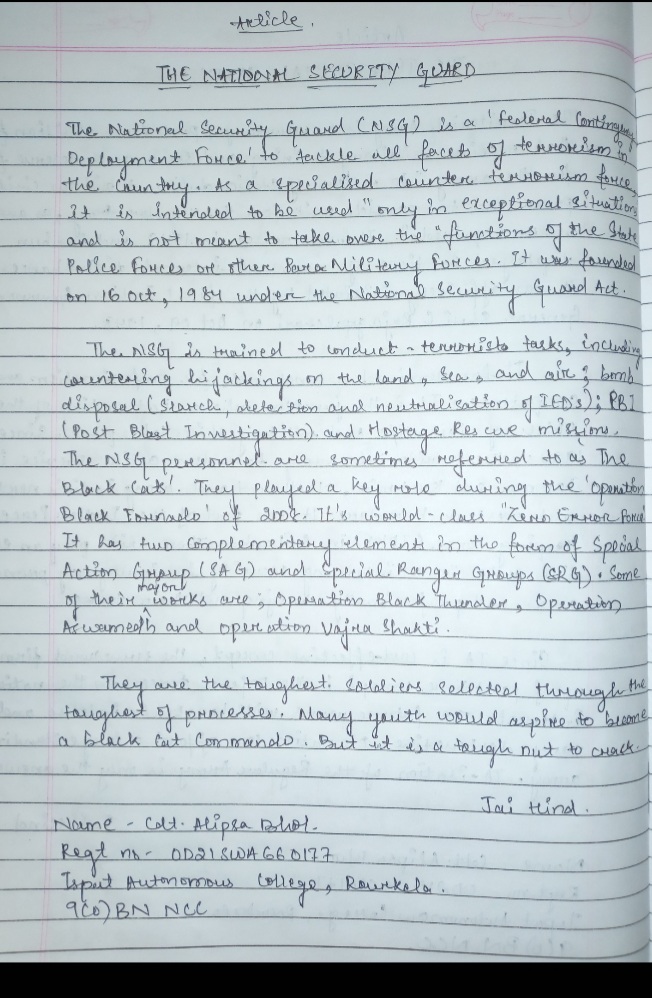 Article.
THE NATIONAL SECURITY GUARD
The National Security Guard (NSG) is a 'federal Contingency
Deployment Force' to tackle all facets of terrorism in
the country. As a specialised counter terrorism force,
it is intended to be used "only in exceptional situations
and is not meant to take over the "functions of the State
Police Forces or other Para Military Forces. It was founded
on 16 Oct, 1984 under the National Security Guard Act.
The NSG is trained to conduct - terrorists tasks, including
countering hijackings on the land, sea, and air; bomb
disposal (search, detection and neutralisation of IEDs); PBI
(Post Blast Investigation) and Hostage Rescue missions.
The NSG personnel are sometimes referred to as The
Black Cats'. They played a key role during the 'Operation
Black Tornado' of 2008. It's world-class "Zero Error Force"
It has two complementary elements in the form of Special
Action Group (SAG) and Special Ranger Groups (SRG). Some
of their major works are; Operation Black Thunder, Operation
Aswamedh and operation Vajra Shakti.
They are the toughest soldiers selected through the
toughest of processes. Many youth would aspire to become
a black Cat Commando. But it is a tough nut to crack.
Jai Hind.
Name - Cdt. Alipsa Bhol.
Regt no- OD21SWA660177
Ispat Autonomous College, Rourkela.
9(O) BN NCC